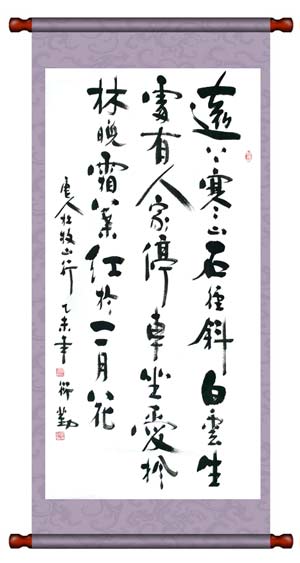 遠上寒山石徑斜白雲生
處有人家停車坐愛楓
林晚霜葉紅於二月花
唐人杜牧山行 乙未年 勤